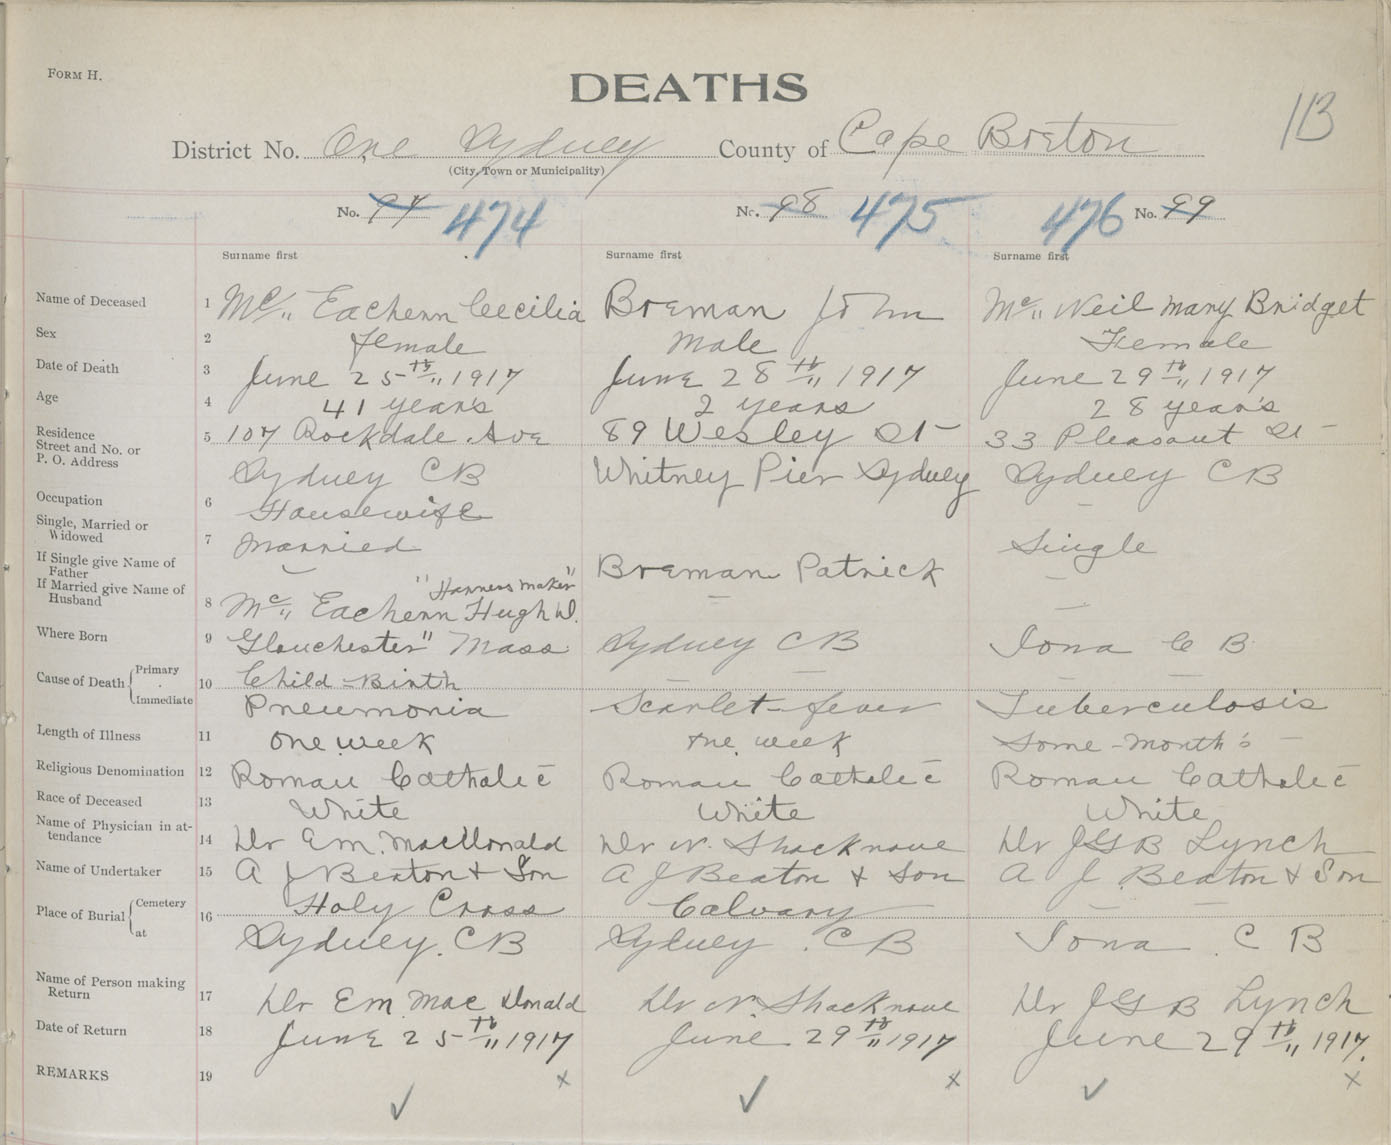 FORM H.
DEATHS
113
District No. One Sydney County of Cape Breton
(City, Town or Municipality)
No. 97 474 No. 98 475 476 No. 99
Surname first Surname first Surname first
Name of Deceased 1 Mc„ Eachern Cecilia Breman John Mc„ Neil Mary Bridget
Sex 2 Female Male Female
Date of Death 3 June 25th„ 1917 June 28th„ 1917 June 29th„ 1917
Age 4 41 year's 2 years 28 year's
Residence Street and No. or P. O. Address 5 107 Rockdale Ave 89 Wesley St 33 Pleasant St
Sydney CB Whitney Pier Sydney Sydney CB
Occupation 6 Housewife –
Single, Married or Widowed 7 Married Single
If Single give Name of Father Breman Patrick –
"Harness maker"
If Married give Name of Husband 8 Mc„ Eachern Hugh D. – –
Where Born 9 Glouchester" Mass Sydney CB Iona C B
Cause of Death Primary 10 Child-Birth – – –
Immediate Pneumonia Scarlet-fever Tuberculosis
Length of Illness 11 one week one week some-month's –
Religious Denomination 12 Roman Catholic Roman Catholic Roman Catholic
Race of Deceased 13 White White White
Name of Physician in attendance 14 Dr Em. MacDonald Dr N. Shacknove Dr JGB Lynch
Name of Undertaker 15 A J Beaton + Son A J Beaton + Son A J Beaton + Son
Place of Burial Cemetery 16 Holy Cross Calvary – –
at Sydney. CB Sydney. CB Iona C B
Name of Person making Return 17 Dr Em. Mac Donald Dr N. Shacknove Dr JGB Lynch
Date of Return 18 June 25th„ 1917 June 29th„ 1917 June 29th„ 1917.
REMARKS 19 x x x
✓ ✓ ✓